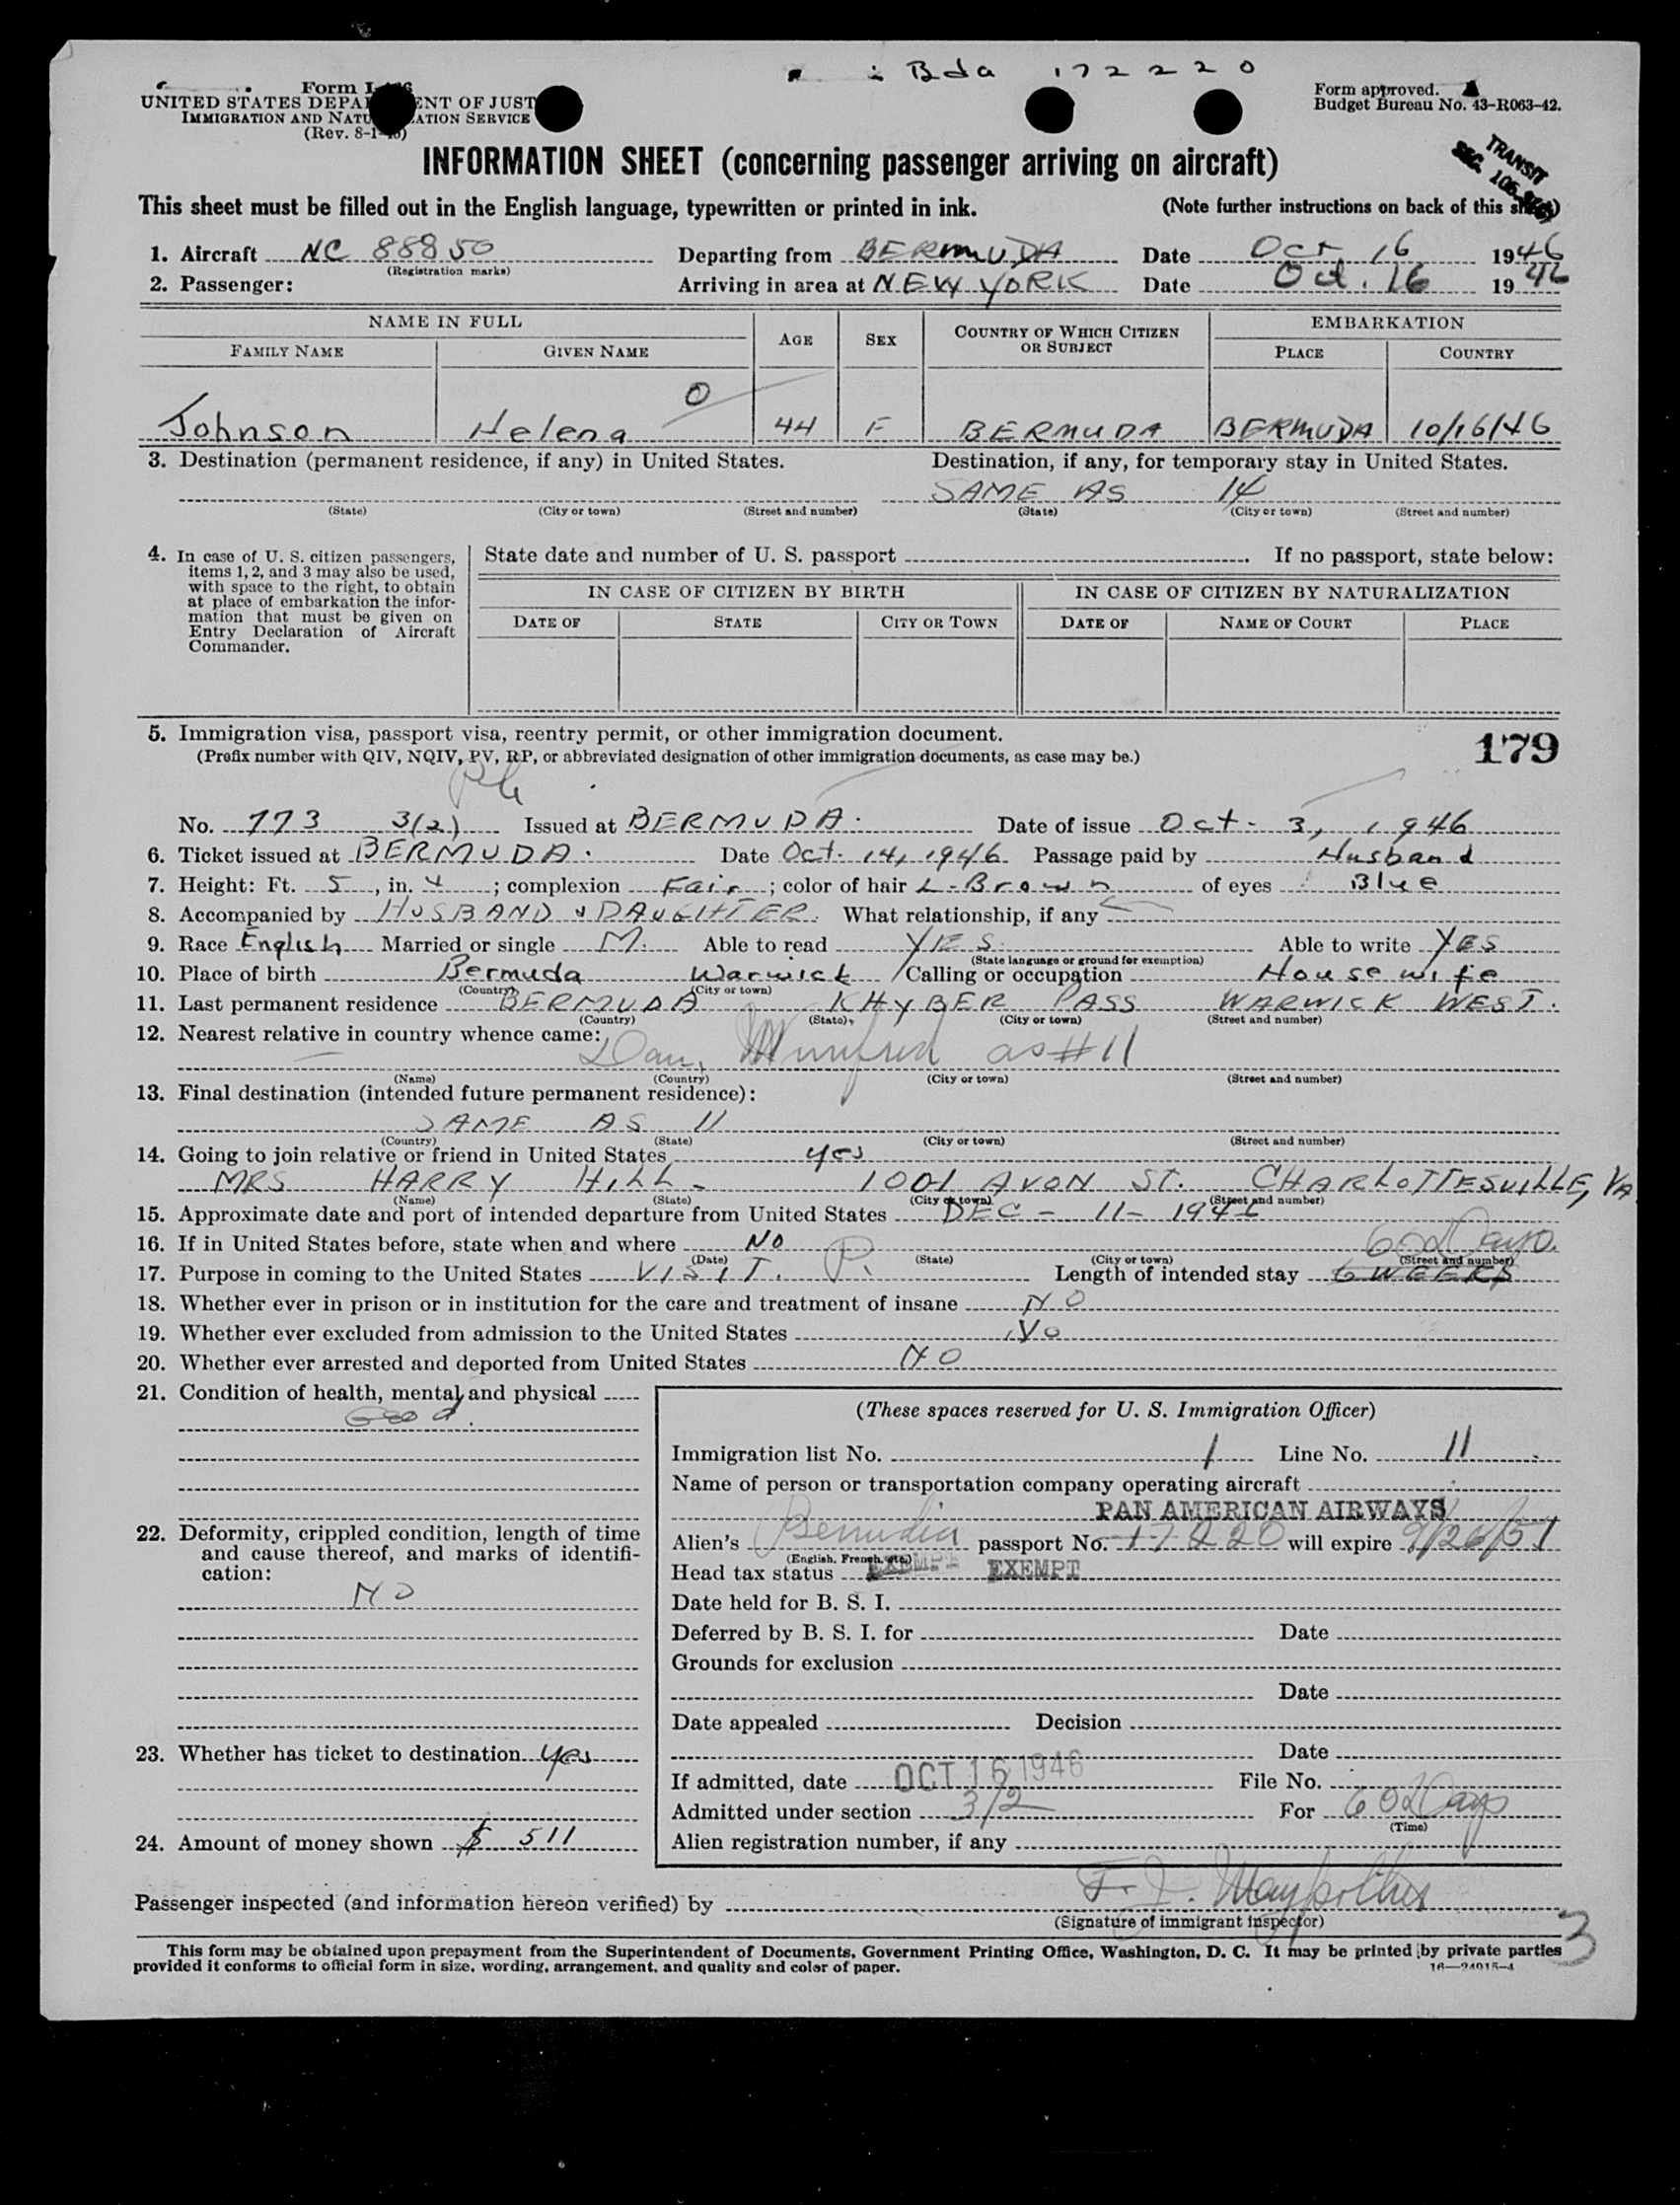 Bda 172220
Form I-466
UNITED STATES DEPARTMENT OF JUSTICE
IMMIGRATION AND NATURALIZATION SERVICE
(Rev. 8-1-45)
Form approved.
Budget Bureau No. 43-R063-42.
TRANSIT
SEC.
INFORMATION SHEET (concerning passenger arriving on aircraft)
This sheet must be filled out in the English language, typewritten or printed in ink. (Note further instructions on back of this sheet)
1. Aircraft NC 88850 Departing from BERMUDA Date Oct 16 1946
(Registration marks)
2. Passenger: Arriving in area at NEW YORK Date Oct. 16 1946
NAME IN FULL AGE SEX COUNTRY OF WHICH CITIZEN OR SUBJECT EMBARKATION
FAMILY NAME GIVEN NAME PLACE COUNTRY
0
Johnson Helena 44 F BERMUDA BERMUDA 10/16/46
3. Destination (permanent residence, if any) in United States. Destination, if any, for temporary stay in United States.
SAME AS 14
(State) (City or town) (Street and number) (State) (City or town) (Street and number)
4. In case of U. S. citizen passengers, items 1, 2, and 3 may also be used, with space to the right, to obtain at place of embarkation the information that must be given on Entry Declaration of Aircraft Commander.
State date and number of U. S. passport . If no passport, state below:
IN CASE OF CITIZEN BY BIRTH IN CASE OF CITIZEN BY NATURALIZATION
DATE OF STATE CITY OR TOWN DATE OF NAME OF COURT PLACE
5. Immigration visa, passport visa, reentry permit, or other immigration document.
(Prefix number with QIV, NQIV, PV, RP, or abbreviated designation of other immigration documents, as case may be.)
179
No. 773 3(2) Issued at BERMUDA. Date of issue Oct- 3, 1946
6. Ticket issued at BERMUDA. Date Oct. 14, 1946 Passage paid by Husband
7. Height: Ft. 5, in. 4; complexion Fair; color of hair L-Brown of eyes Blue
8. Accompanied by HUSBAND & DAUGHTER. What relationship, if any
9. Race English Married or single M. Able to read YES. Able to write YES
(State language or ground for exemption)
10. Place of birth Bermuda Warwick Calling or occupation Housewife
(Country) (City or town)
11. Last permanent residence BERMUDA KHYBER PASS WARWICK WEST.
(Country) (State) (City or town) (Street and number)
12. Nearest relative in country whence came:
Dau. Winifred as #11
(Name) (Country) (City or town) (Street and number)
13. Final destination (intended future permanent residence):
SAME AS 11
(Country) (State) (City or town) (Street and number)
14. Going to join relative or friend in United States yes
MRS HARRY HILL - 1001 AVON ST. CHARLOTTESVILLE, VA
(Name) (State) (City or town) (Street and number)
15. Approximate date and port of intended departure from United States DEC - 11- 1946
16. If in United States before, state when and where NO 60 Days.
(Date) (State) (City or town) (Street and number)
17. Purpose in coming to the United States VISIT. P. Length of intended stay 6 WEEKS
18. Whether ever in prison or in institution for the care and treatment of insane NO
19. Whether ever excluded from admission to the United States No
20. Whether ever arrested and deported from United States NO
21. Condition of health, mental, and physical
Good.
22. Deformity, crippled condition, length of time and cause thereof, and marks of identification:
NO
23. Whether has ticket to destination yes
24. Amount of money shown $ 511
(These spaces reserved for U. S. Immigration Officer)
Immigration list No. 1 Line No. 11
Name of person or transportation company operating aircraft
PAN AMERICAN AIRWAYS
Alien's Bermudia passport No. 17220 will expire 9/26/51
(English, French, etc.)
Head tax status EXEMPT EXEMPT
Date held for B. S. I.
Deferred by B. S. I. for Date
Grounds for exclusion
Date
Date appealed Decision
Date
If admitted, date OCT 16 1946 File No.
Admitted under section 3/2 For 60 Days
(Time)
Alien registration number, if any
Passenger inspected (and information hereon verified) by F. J.
(Signature of immigrant inspector)
3
This form may be obtained upon prepayment from the Superintendent of Documents, Government Printing Office, Washington, D. C. It may be printed by private parties
provided it conforms to official form in size, wording, arrangement, and quality and color of paper.
16—24015-4